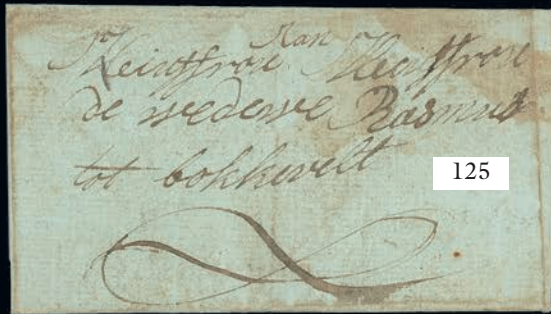 Aan
Meijuffrou Meijuffrou
de wedewe Rasmus
tot bokkevelt
125